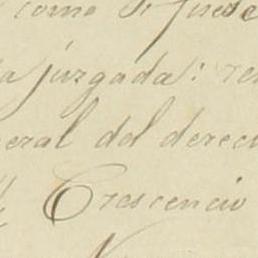 como si fuese
juzgada: re
eral del derec
Crescencio